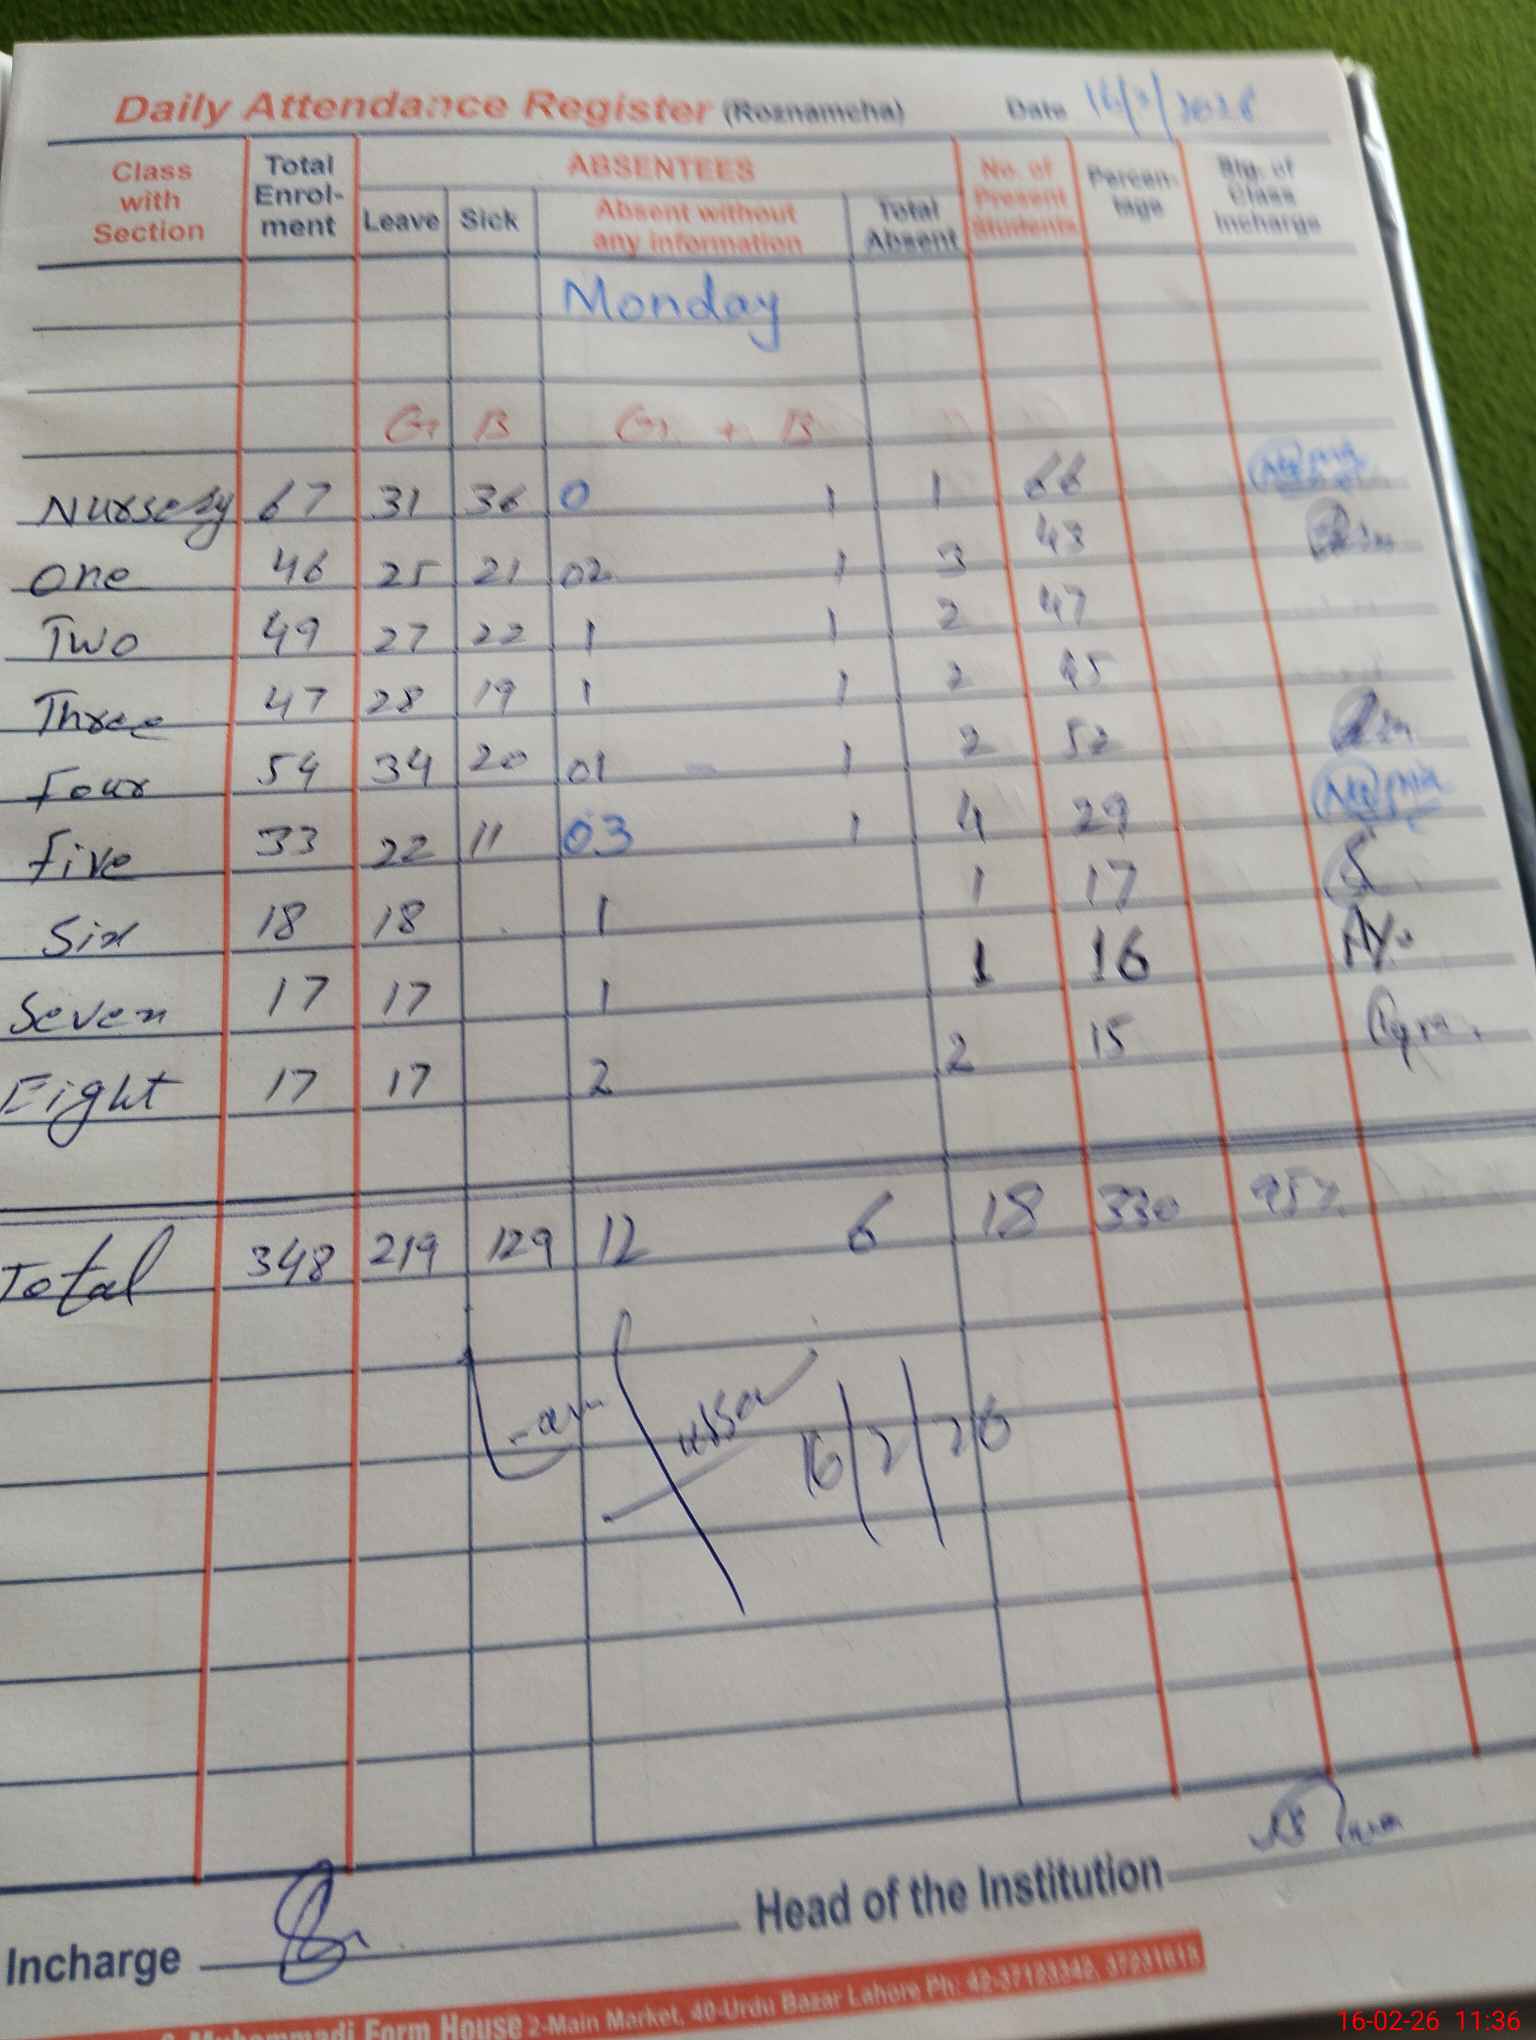 Daily Attendance Register (Roznamcha) Date 16/2/2026
Class with Section Total Enrol-ment ABSENTEES No. of Present Students Percen-tage Sig. of Class Incharge
Leave Sick Absent without any information Total Absent
Monday
G B G + B
Nursery 67 31 36 0 1 1 66
One 46 25 21 02 1 3 43
Two 49 27 22 1 1 2 47
Three 47 28 19 1 1 2 45
Four 54 34 20 01 - 1 2 52
Five 33 22 11 03 1 4 29
Six 18 18 1 1 17
Seven 17 17 1 1 16
Eight 17 17 2 2 15
Total 348 219 129 12 6 18 330 95%
16/2/26
Incharge Head of the Institution
Muhammadi Form House 2-Main Market, 40-Urdu Bazar Lahore Ph: 42-37123342, 37231618
16-02-26 11:36